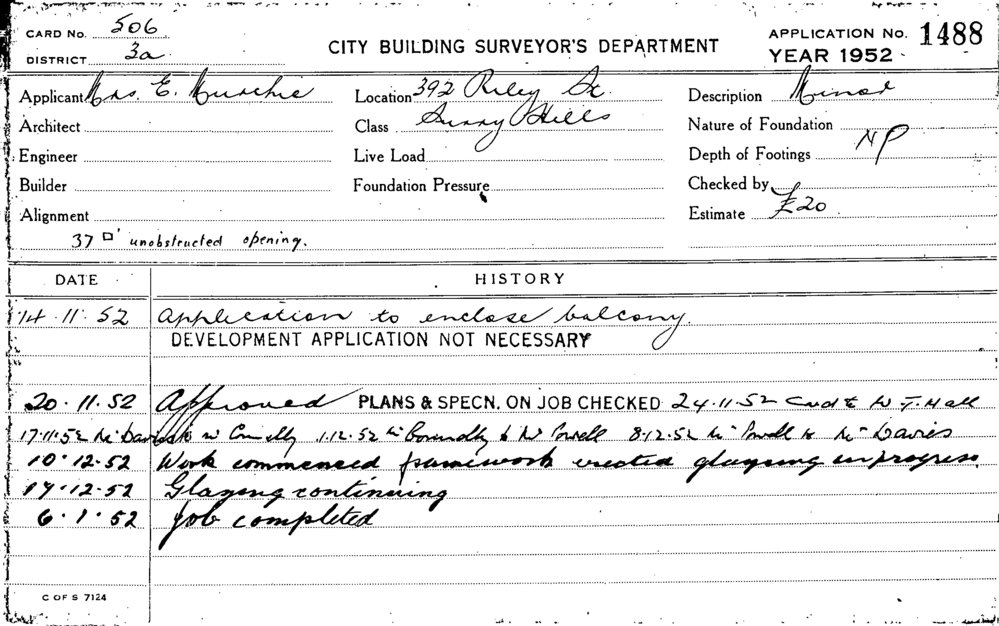 CARD No. 506
DISTRICT 3a
CITY BUILDING SURVEYOR'S DEPARTMENT
APPLICATION No. 1488
YEAR 1952
Applicant Mrs. E. Murchie
Location 392 Riley St.
Description Minor
Architect
Class Surry Hills
Nature of Foundation
Engineer
Live Load
Depth of Footings NP
Builder
Foundation Pressure
Checked by
Alignment
Estimate £20
37 □' unobstructed opening.
DATE HISTORY
14.11.52 Application to enclose balcony.
DEVELOPMENT APPLICATION NOT NECESSARY
20.11.52 Approved PLANS & SPECN. ON JOB CHECKED 24.11.52 W. T. Hall
17.11.52 Mr Davies to Mr Connelly 1.12.52 Mr to Mr Powell 8.12.52 Mr Powell to Mr Davies
10.12.52 Work commenced framework erected glazing in progress.
19.12.52 Glazing continuing
6.1.52 Job completed
C OF S 7124